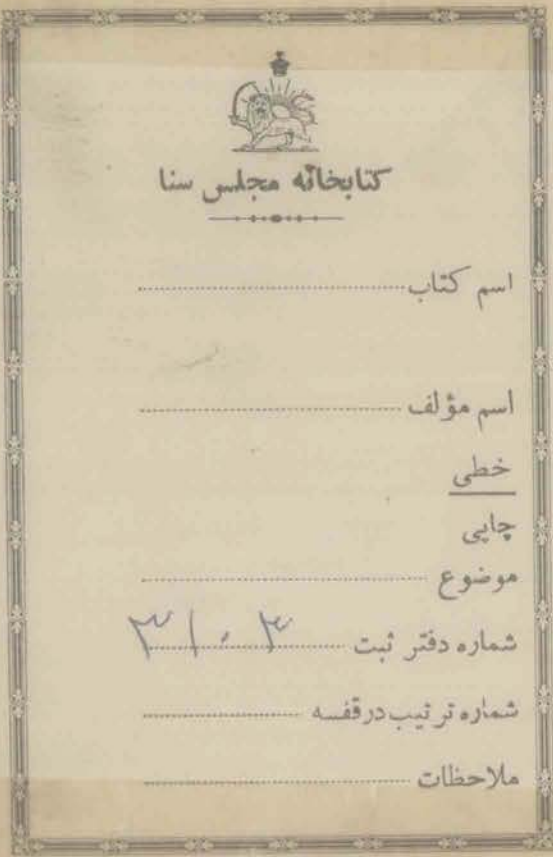 کتابخانه مجلس سنا
اسم کتاب
اسم مؤلف
خطی
چاپی
موضوع
شماره دفتر ثبت ۳۱۰۳
شماره ترتیب در قفسه
ملاحظات